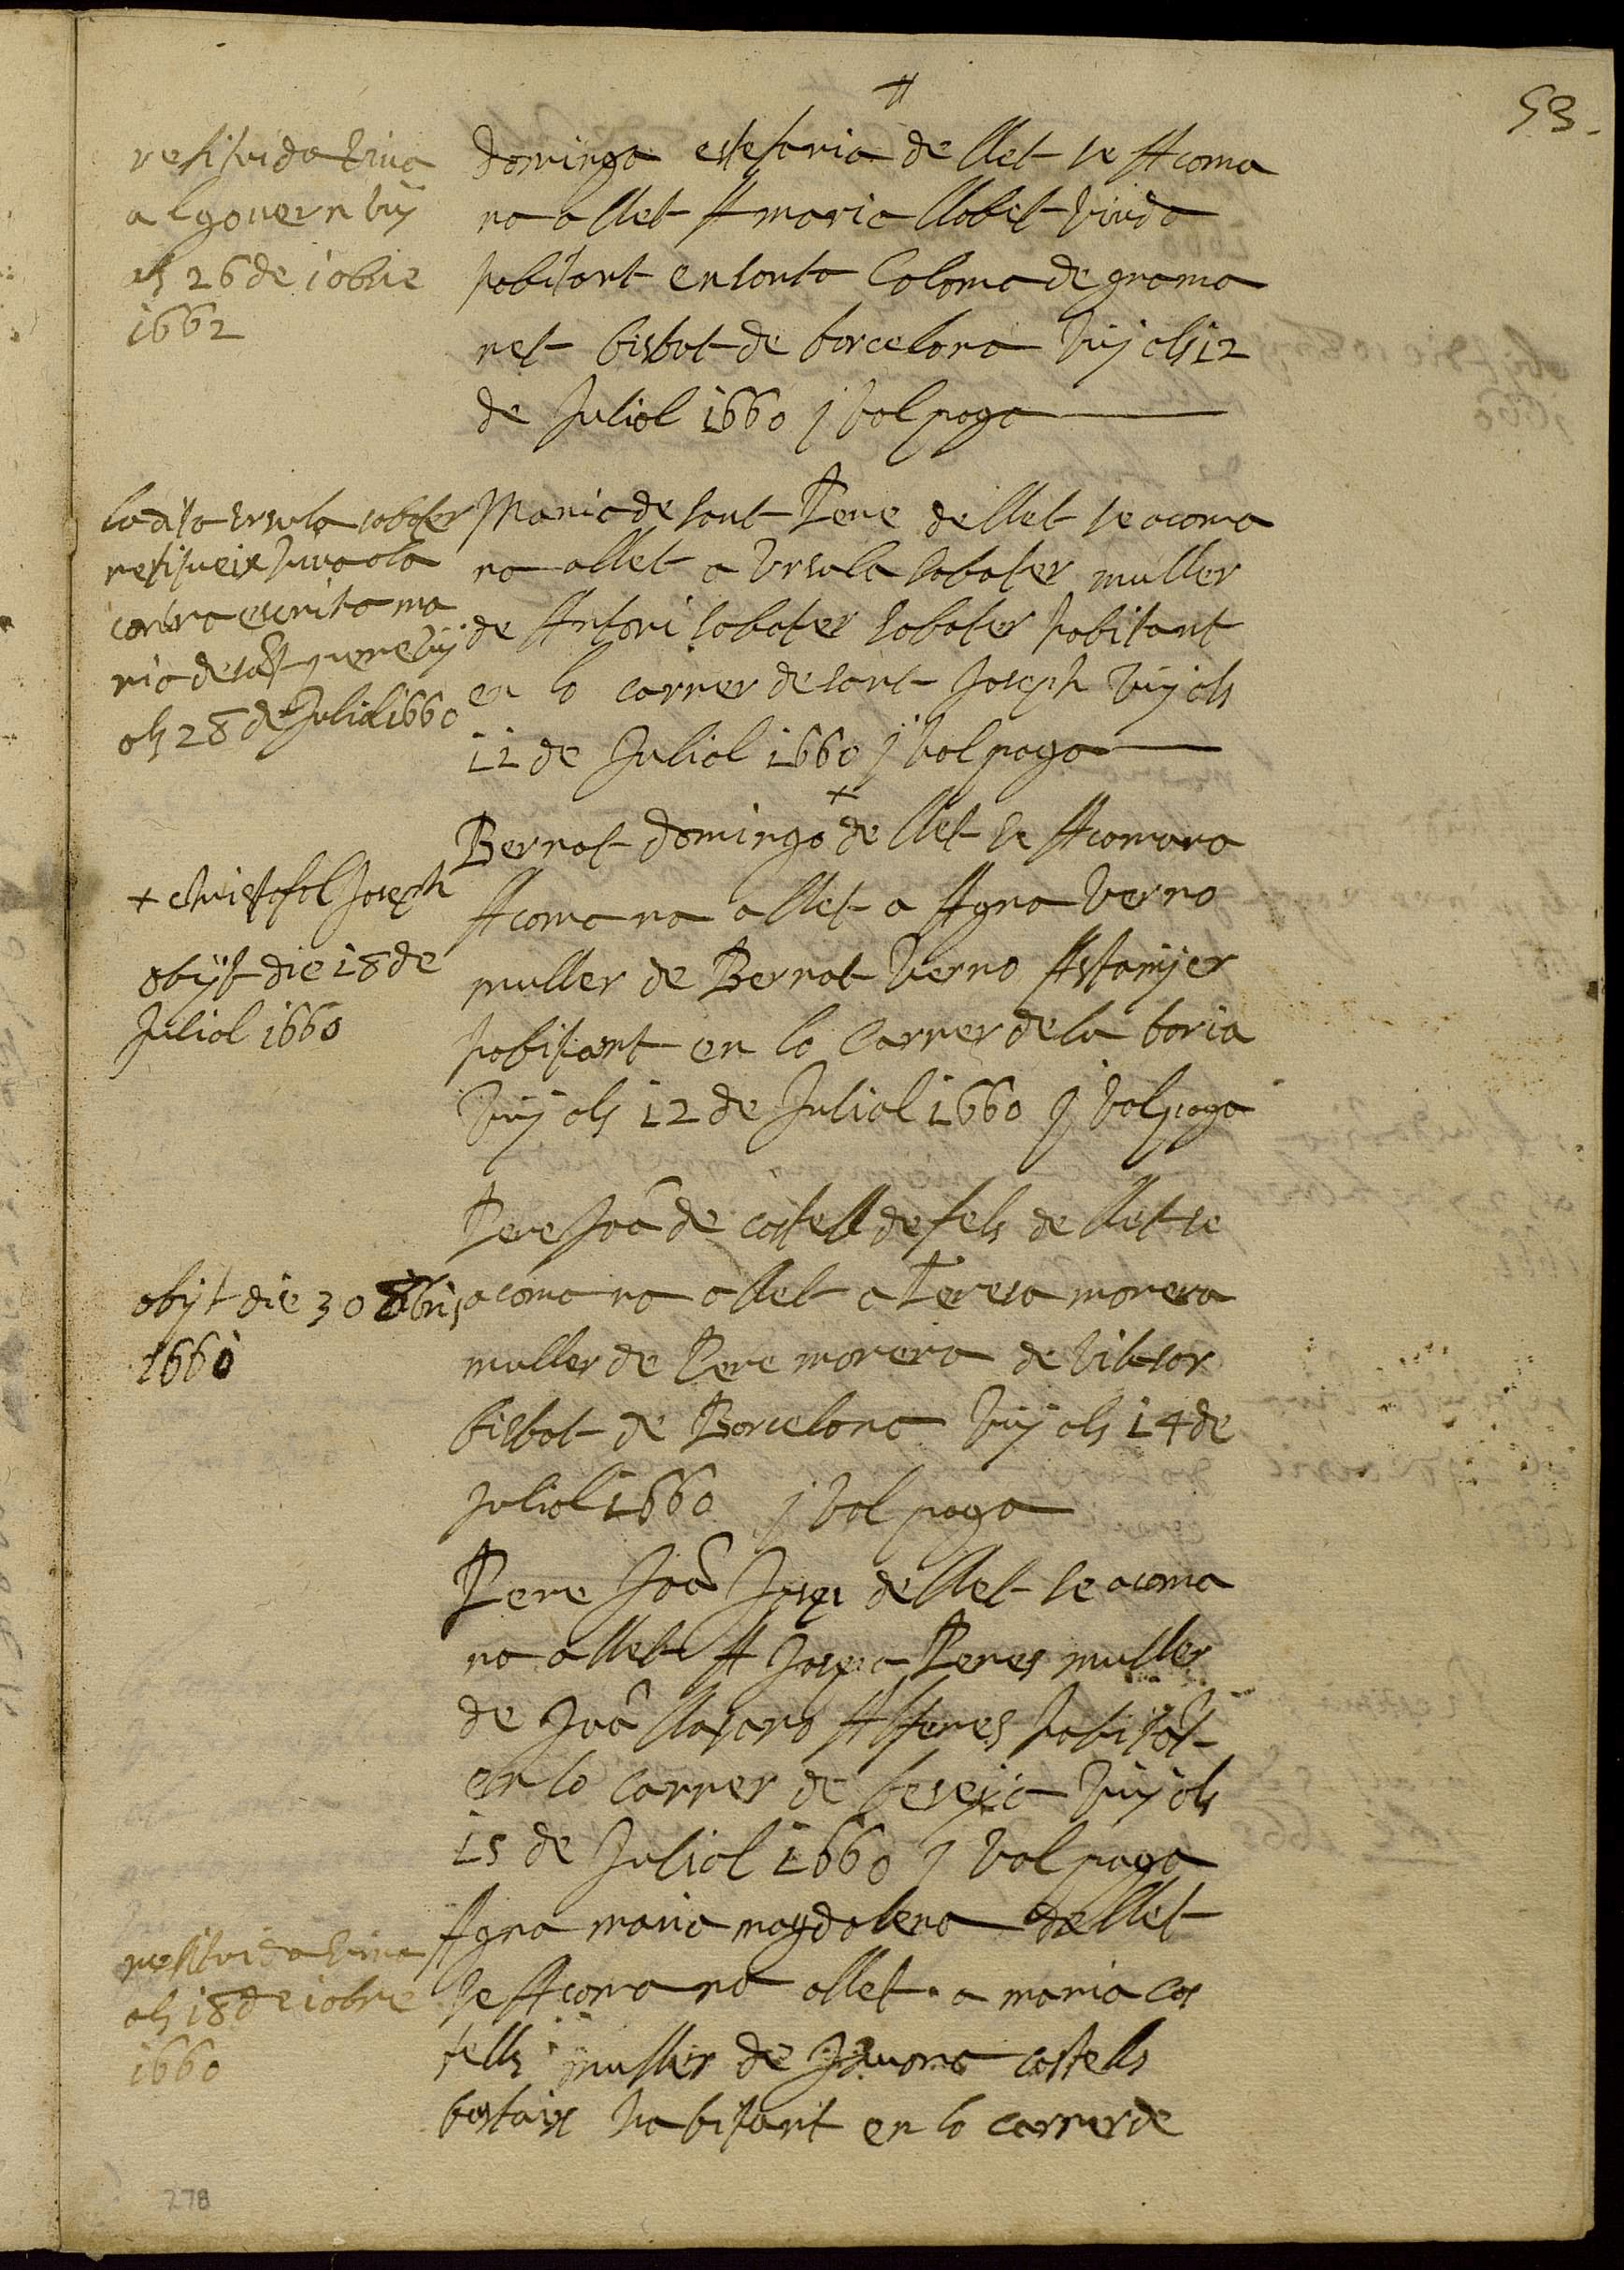 53.
restituida viua
al gouern vuy
als 26 de iobre
1662
domingo estefania de llet se Acoma
na a llet A maria llobet viuda
habitant en santa Coloma de grama
net bisbat de barcelona vuy als 12
de Juliol 1660 j vol paga
la dita Ursula sabater
restitueix viua a la
contra escrita ma
ria de sât pere vuy
als 28 de Juliol 1660
Maria de sant Pere de llet se acoma
na a llet a Ursula sabater muller
de Antoni sabater sabater habitant
en lo carrer de sant Joseph vuy als
12 de Juliol 1660 j vol paga
+ christofol Joseph
obijt die 18 de
Juliol 1660
+
Bernat domingo de llet se Acomana
Acoma na a llet a Agna Verno
muller de Bernat Verno Astanyer
habitant en lo Carrer de la boria
Vuy als 12 de Juliol 1660 j vol paga
obijt die 30 8bris
1660
Pere Joâ de castell de fels de llet se
acoma na a llet a Teresa morera
muller de Pere morera de
bisbat de Barcelona vuy als 14 de
Juliol 1660 j vol paga
Pere Joâ Josep de llet se acoma
na a llet A Josepa Peres muller
de Joâ llasaro Alferes habitât
en lo carrer de vuy als
15 de Juliol 1660 j vol paga
restituida viua
als 18 de iobre
1660
Agna maria magdalena de llet
se Acoma na a llet a maria Cas
tells muller de Jauma castells
bastaix habitant en lo carrer de
278